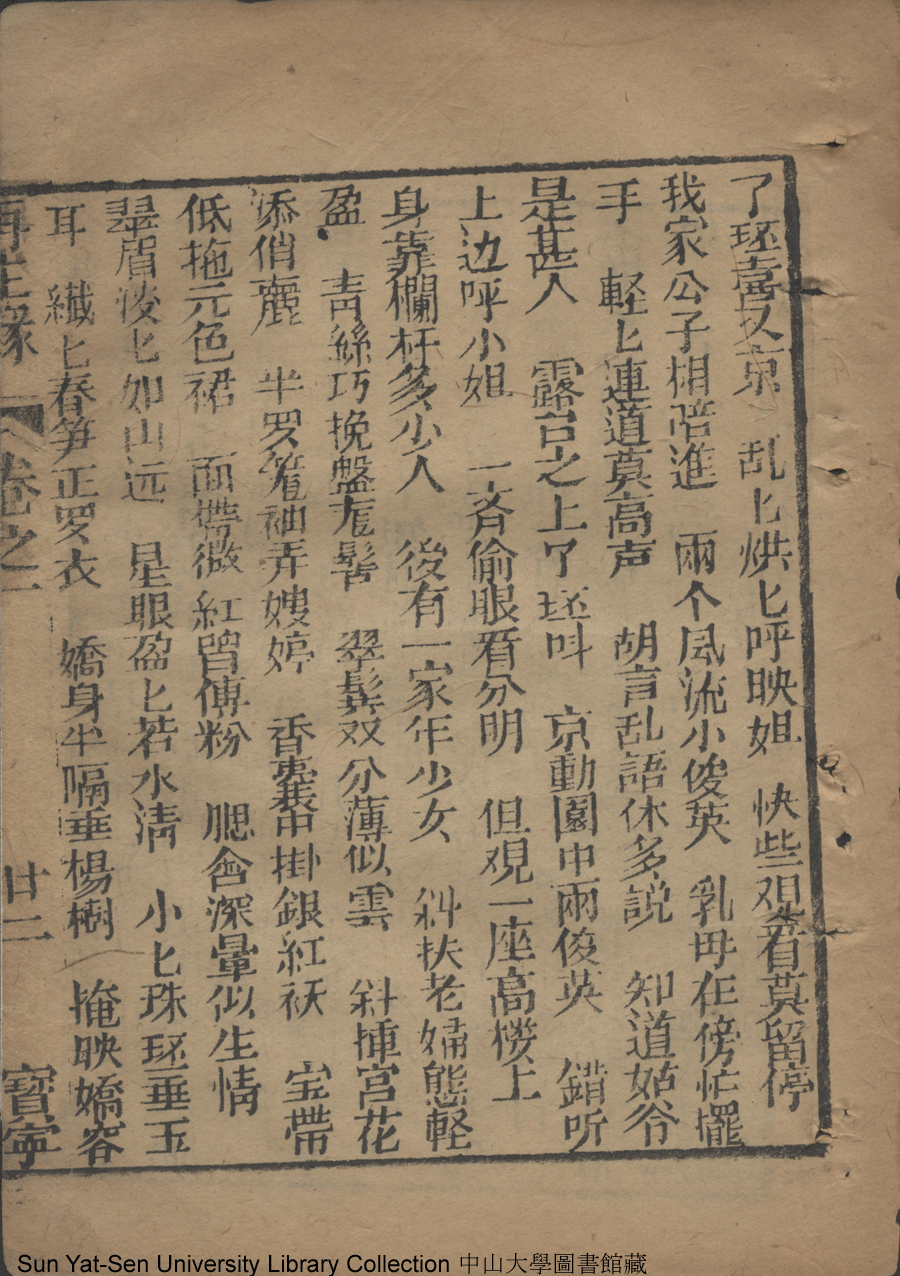 了环喜又京　乱匕烘匕呼映姐　快些观看莫留停
我家公子相陪進　兩个風流小俊英　乳母在傍忙擺
手　軽匕連道莫高声　胡言乱語休多説　知道姑爷
是甚人　露台之上了环叫　京動園中兩俊英　錯听
上边呼小姐　一斉偷眼看分明　但观一座高楼上
身靠欄杆多少人　後有一家年少女　斜扶老婦態軽
盈　青絲巧挽盤龍髻　翠鬓双分薄似雲　斜揷宫花
添俏麗　半罗窄袖弄娉婷　香囊掛銀紅袄　宝帶
低拖元色裙　面帶微紅曾傅粉　腮含深暈似生情
翠眉淡匕如山远　星眼盈匕若水清　小匕珠环垂玉
耳　纎匕春笋正罗衣　嬌身半隔垂楊樹　掩映嬌容
再生緣　卷之一　廿二　寶寧
Sun Yat-Sen University Library Collection 中山大學圖書館藏